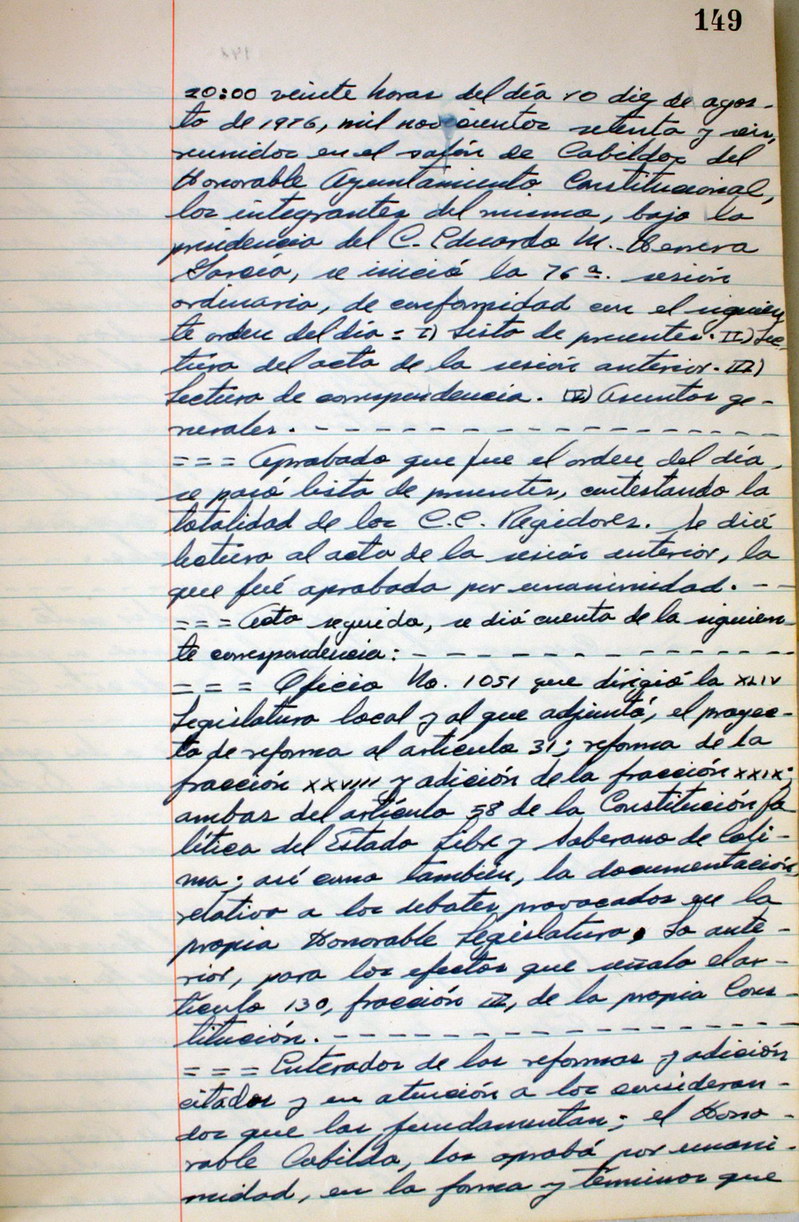 149
20:00 veinte horas del día 10 diez de agos-
to de 1976, mil novecientos setenta y seis,
reunidos en el salón de Cabildos del
Honorable Ayuntamiento Constitucional,
los integrantes del mismo, bajo la
presidencia del C. Eduardo M. Herrera
García, se inició la 76a. sesión
ordinaria, de conformidad con el siguien
te orden del día = I) Lista de presentes. II) Lec-
tura del acta de la sesión anterior. III)
Lectura de correspondencia. IV) Asuntos ge-
nerales. - - - - - - - - - - - - - - -
= = = Aprobado que fue el orden del día,
se pasó lista de presentes, contestando la
totalidad de los C.C. Regidores. Se dió
lectura al acta de la sesión anterior, la
que fué aprobada por unanimidad. - -
= = = Acto seguido, se dió cuenta de la siguien-
te correspondencia: - - - - - - - - - - - -
= = = Oficio No. 1051 que dirigió la XLIV
Legislatura local y al que adjuntó, el proyec-
to de reforma al artículo 31; reforma de la
fracción XXVIII y adición de la fracción XXIX;
ambas del artículo 58 de la Constitución Po
lítica del Estado Libre y Soberano de Coli-
ma; así como también, la documentación,
relativa a los debates provocados en la
propia Honorable Legislatura. Lo ante-
rior, para los efectos que señala el ar-
tículo 130, fracción III, de la propia Cons-
titución. - - - - - - - - - - - - - - -
= = = Enterados de las reformas y adición
citados y en atención a los consideran-
dos que las fundamentan; el Hono-
rable Cabildo, los aprobó por unani-
midad, en la forma y términos que